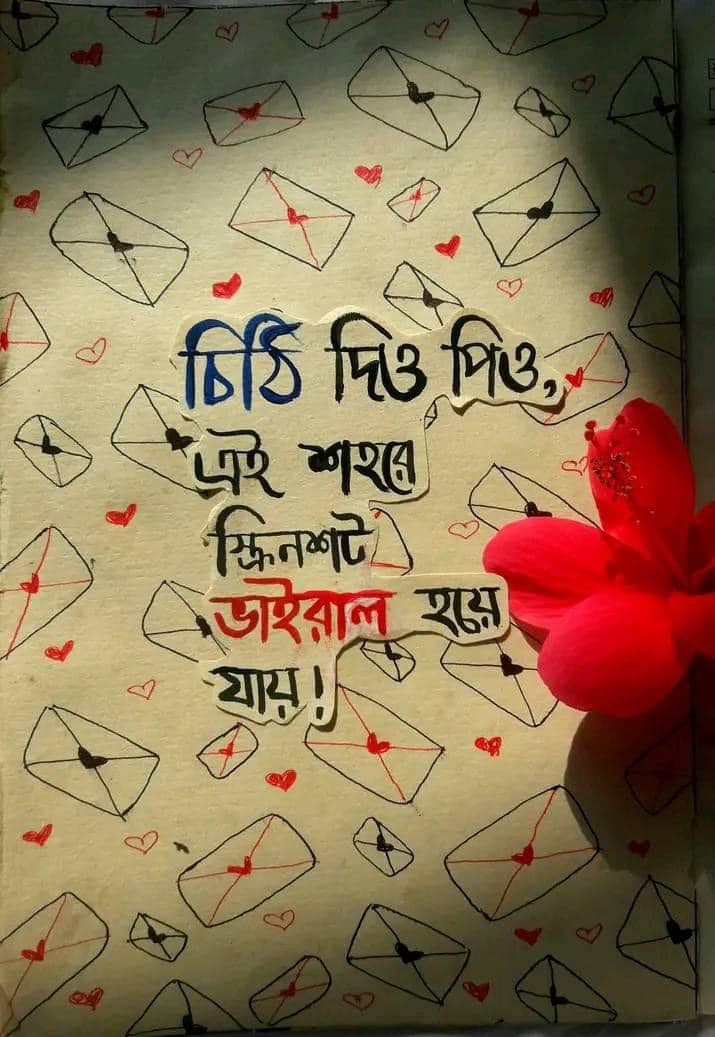 চিঠি দিও পিও,
এই শহরে
স্ক্রিনশট
ভাইরাল হয়ে
যায়!